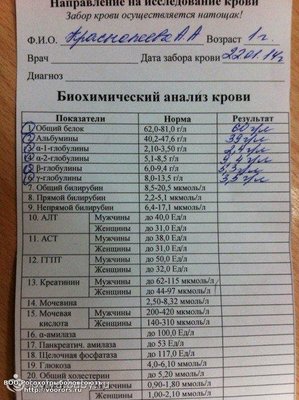 Направление на исследование крови
Забор крови осуществляется натощак!
Ф.И.О. А А Возраст 1 г
Врач Дата забора крови 22.01.14г
Диагноз
Биохимический анализ крови
Показатели Норма Результат
1 Общий белок 62,0-81,0 г/л 60 г/л
2 Альбумины 40,2-47,6 г/л 39 г/л
3 α-1-глобулины 2,10-3,50 г/л 2,4 г/л
4 α-2-глобулины 5,1-8,5 г/л 9,4 г/л
5 β-глобулины 6,0-9,4 г/л 5,3 г/л
6 γ-глобулины 8,0-13,5 г/л 3,5 г/л
7. Общий билирубин 8,5-20,5 мкмоль/л
8. Прямой билирубин 2,2-5,1 мкмоль/л
9. Непрямой билирубин 6,4-17,1 мкмоль/л
10. АЛТ Мужчины до 40,0 Ед/л
Женщины до 31,0 Ед/л
11. АСТ Мужчины до 38,0 Ед/л
Женщины до 31,0 Ед/л
12. ГГТП Мужчины до 50,0 Ед/л
Женщины до 32,0 Ед/л
13. Креатинин Мужчины до 62-115 мкмоль/л
Женщины до 44-97 мкмоль/л
14. Мочевина 2,50-8,32 ммоль/л
15. Мочевая кислота Мужчины 200-420 мкмоль/л
Женщины 140-310 мкмоль/л
16. α-амилаза до 100,0 Ед/л
17. Панкреатич. амилаза до 53 Ед/л
18. Щелочная фосфатаза до 117,0 Ед/л
19. Глюкоза 4,0-6,10 ммоль/л
20. Общий холестерин до 5,20 ммоль/л
Мужчины 0,90-1,80 ммоль/л
Женщины 1,00-2,10 ммоль/л
ВОО Росохотрыболовсоюз
http://voorors.ru